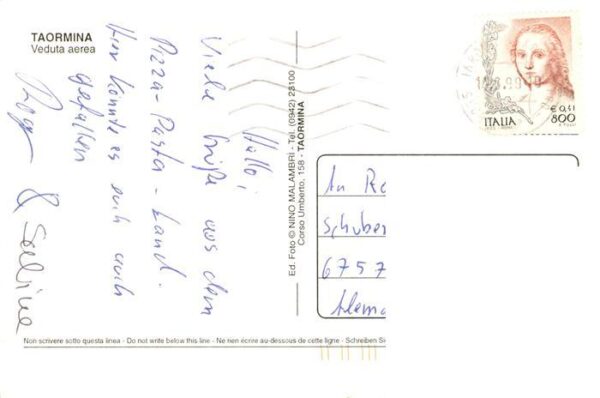 TAORMINA
Veduta aerea
Hallo!
Viele Grüße aus dem
Pizza-Pasta-Land.
Hier könnte es euch auch
gefallen
&
Ed. Foto © NINO MALAMBRÌ - Tel. (0942) 23100
Corso Umberto, 158 - TAORMINA
€ 0,41
ITALIA 800
An
Schuber
6757
Alema
Non scrivere sotto questa linea - Do not write below this line - Ne rien écrire au-dessous de cette ligne - Schreiben Si